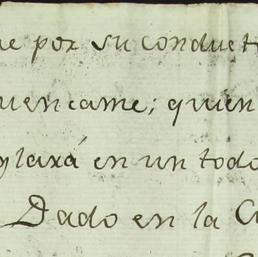 e por su conduct
uencame; quien
ylará en un todo
Dado en la C